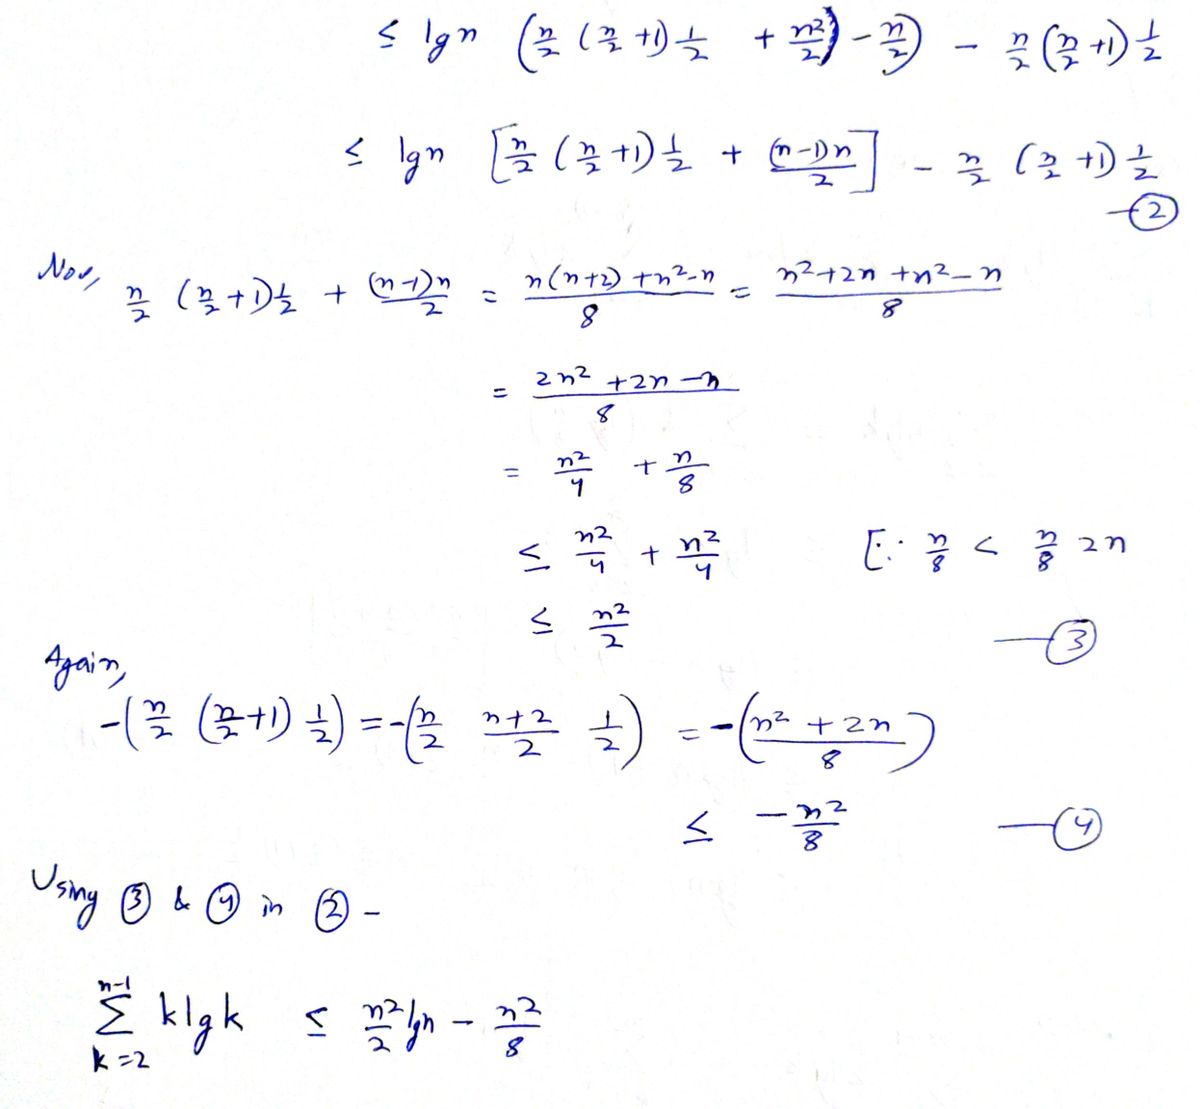 ≤ lgn (n/2 (n/2 +1) 1/2 + n²/2) - n/2) - n/2 (n/2 +1) 1/2
≤ lgn [n/2 (n/2 +1) 1/2 + (n-1)n/2] - n/2 (n/2 +1) 1/2
—②
Now, n/2 (n/2 +1) 1/2 + (n-1)n/2 = n(n+2) +n²-n/8 = n²+2n +n²-n/8
= 2n² +2n -n/8
= n²/4 + n/8
≤ n²/4 + n²/4 [∵ n/8 < n/8 2n
≤ n²/2 —③
Again,
-(n/2 (n/2+1) 1/2) = -(n/2 n+2/2 1/2) = -(n² + 2n/8)
≤ -n²/8 —④
Using ③ & ④ in ② -
n-1
Σ klgk ≤ n²/2 lgn - n²/8
k=2